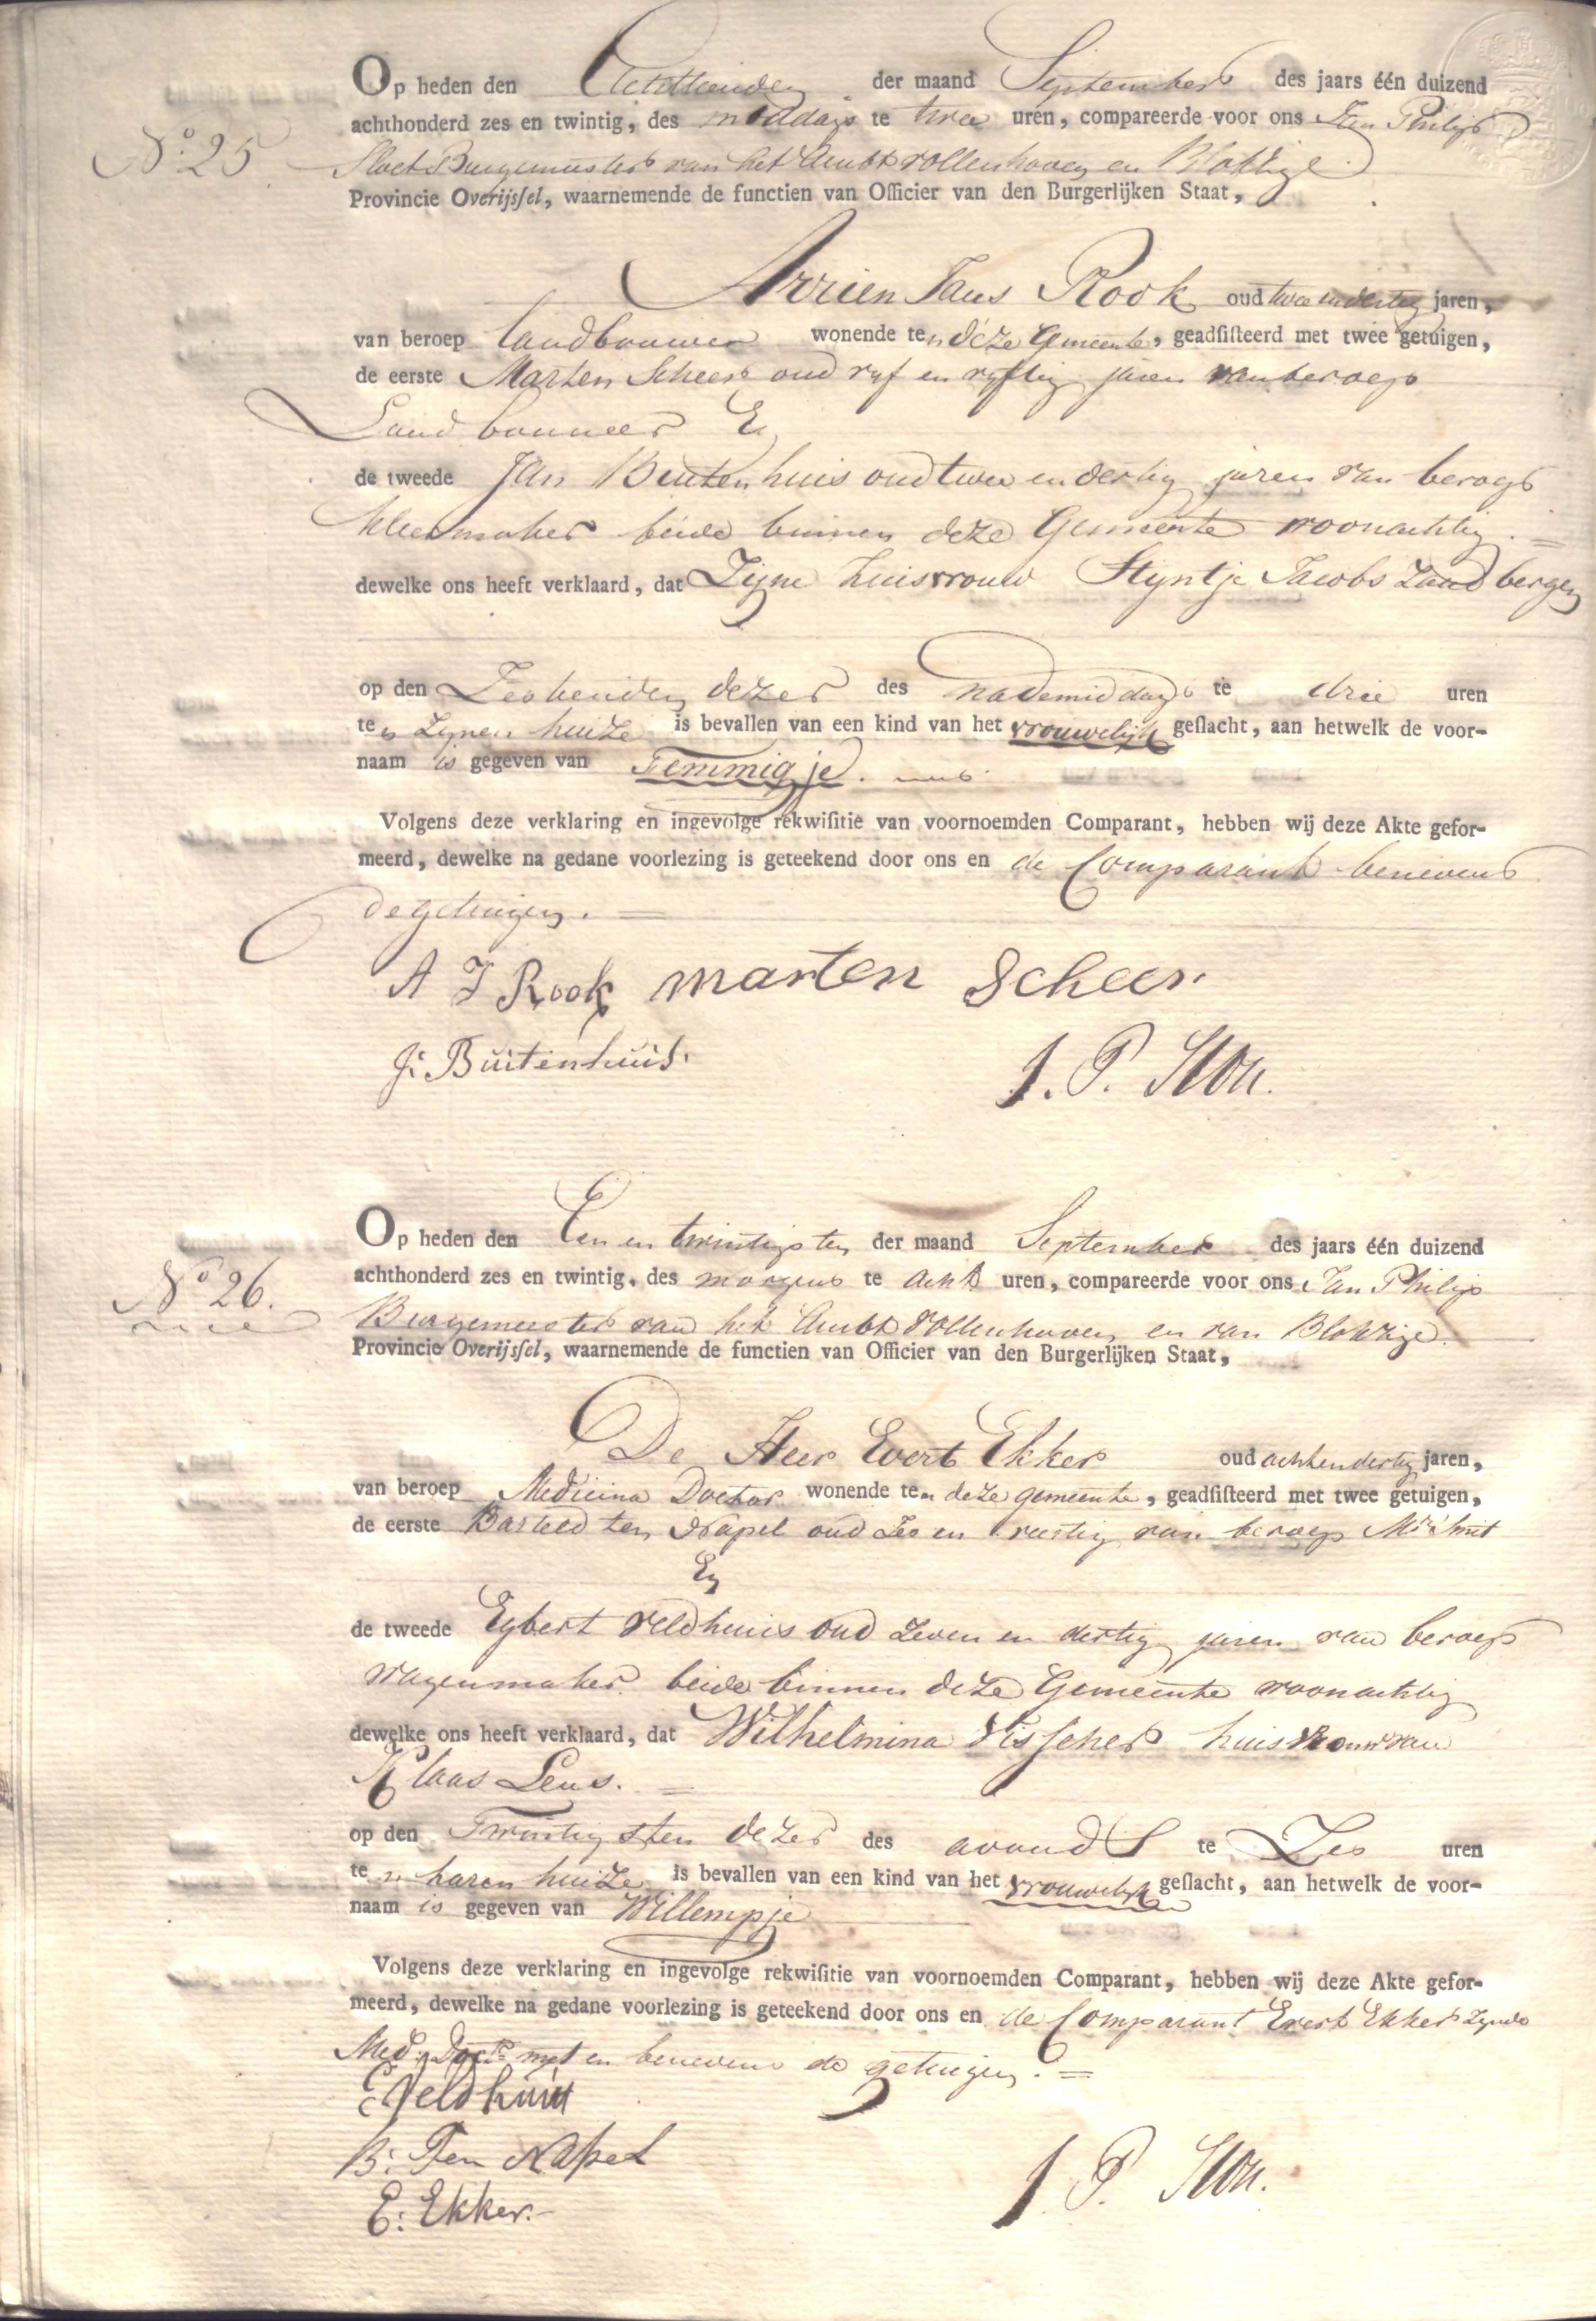 Op heden den Achttienden der maand September des jaars één duizend
No. 25
achthonderd zes en twintig, des middags te twee uren, compareerde voor ons Jan Philip
Sloet Burgemeester van het Ambt vollenhoven en Blokzijl
Provincie Overijſſel, waarnemende de functien van Officier van den Burgerlijken Staat,
Arrien Jans Rook oud twee en dertig jaren,
van beroep landbouwer wonende ten deze Gemeente, geadſiſteerd met twee getuigen,
de eerste Marten Scheer oud vyf en vyftig jaren van beroep
Landbouwer En
de tweede Jan Buitenhuis oud twee en dertig jaren van beroep
kleermaker beide binnen deze Gemeente woonachtig.
dewelke ons heeft verklaard, dat Zyne huisvrouw Styntje Jacobs Zandbergen
op den Zestienden dezer des nademiddags te drie uren
te in zynen huize is bevallen van een kind van het vrouwelijk geſlacht, aan hetwelk de voor-
naam is gegeven van Femmigje.
Volgens deze verklaring en ingevolge rekwiſitie van voornoemden Comparant, hebben wij deze Akte gefor-
meerd, dewelke na gedane voorlezing is geteekend door ons en de Comparant benevens
de getuigen.
A J Rook marten Scheer.
J: Buitenhuis.
J. P. Sloet.
Op heden den Een en twintigsten der maand September des jaars één duizend
No. 26.
achthonderd zes en twintig, des morgens te acht uren, compareerde voor ons Jan Philip
Burgemeester van het Ambt Vollenhoven en van Blokzijl
Provincie Overijſſel, waarnemende de functien van Officier van den Burgerlijken Staat,
De Heer Evert Ekker oud acht en dertig jaren,
van beroep Medicina Doctor wonende ten deze gemeente, geadſiſteerd met twee getuigen,
de eerste Barteld ten Napel oud Zes en veertig van beroep Mr. Smit
En
de tweede Egbert Veldhuis oud Zeven en dertig jaren van beroep
wagenmaker beide binnen deze Gemeente woonachtig
dewelke ons heeft verklaard, dat Wilhelmina Visscher huisvrouw van
Klaas Leus.
op den Twintigsten dezer des avonds te Zes uren
te in haren huize is bevallen van een kind van het vrouwelijk geſlacht, aan hetwelk de voor-
naam is gegeven van Willempje
Volgens deze verklaring en ingevolge rekwiſitie van voornoemden Comparant, hebben wij deze Akte gefor-
meerd, dewelke na gedane voorlezing is geteekend door ons en de Comparant Evert Ekker Zynde
Med. Doctr. met en benevens de getuigen.
E Veldhuis
B: Ten Napel
E: Ekker.
J. P. Sloet.